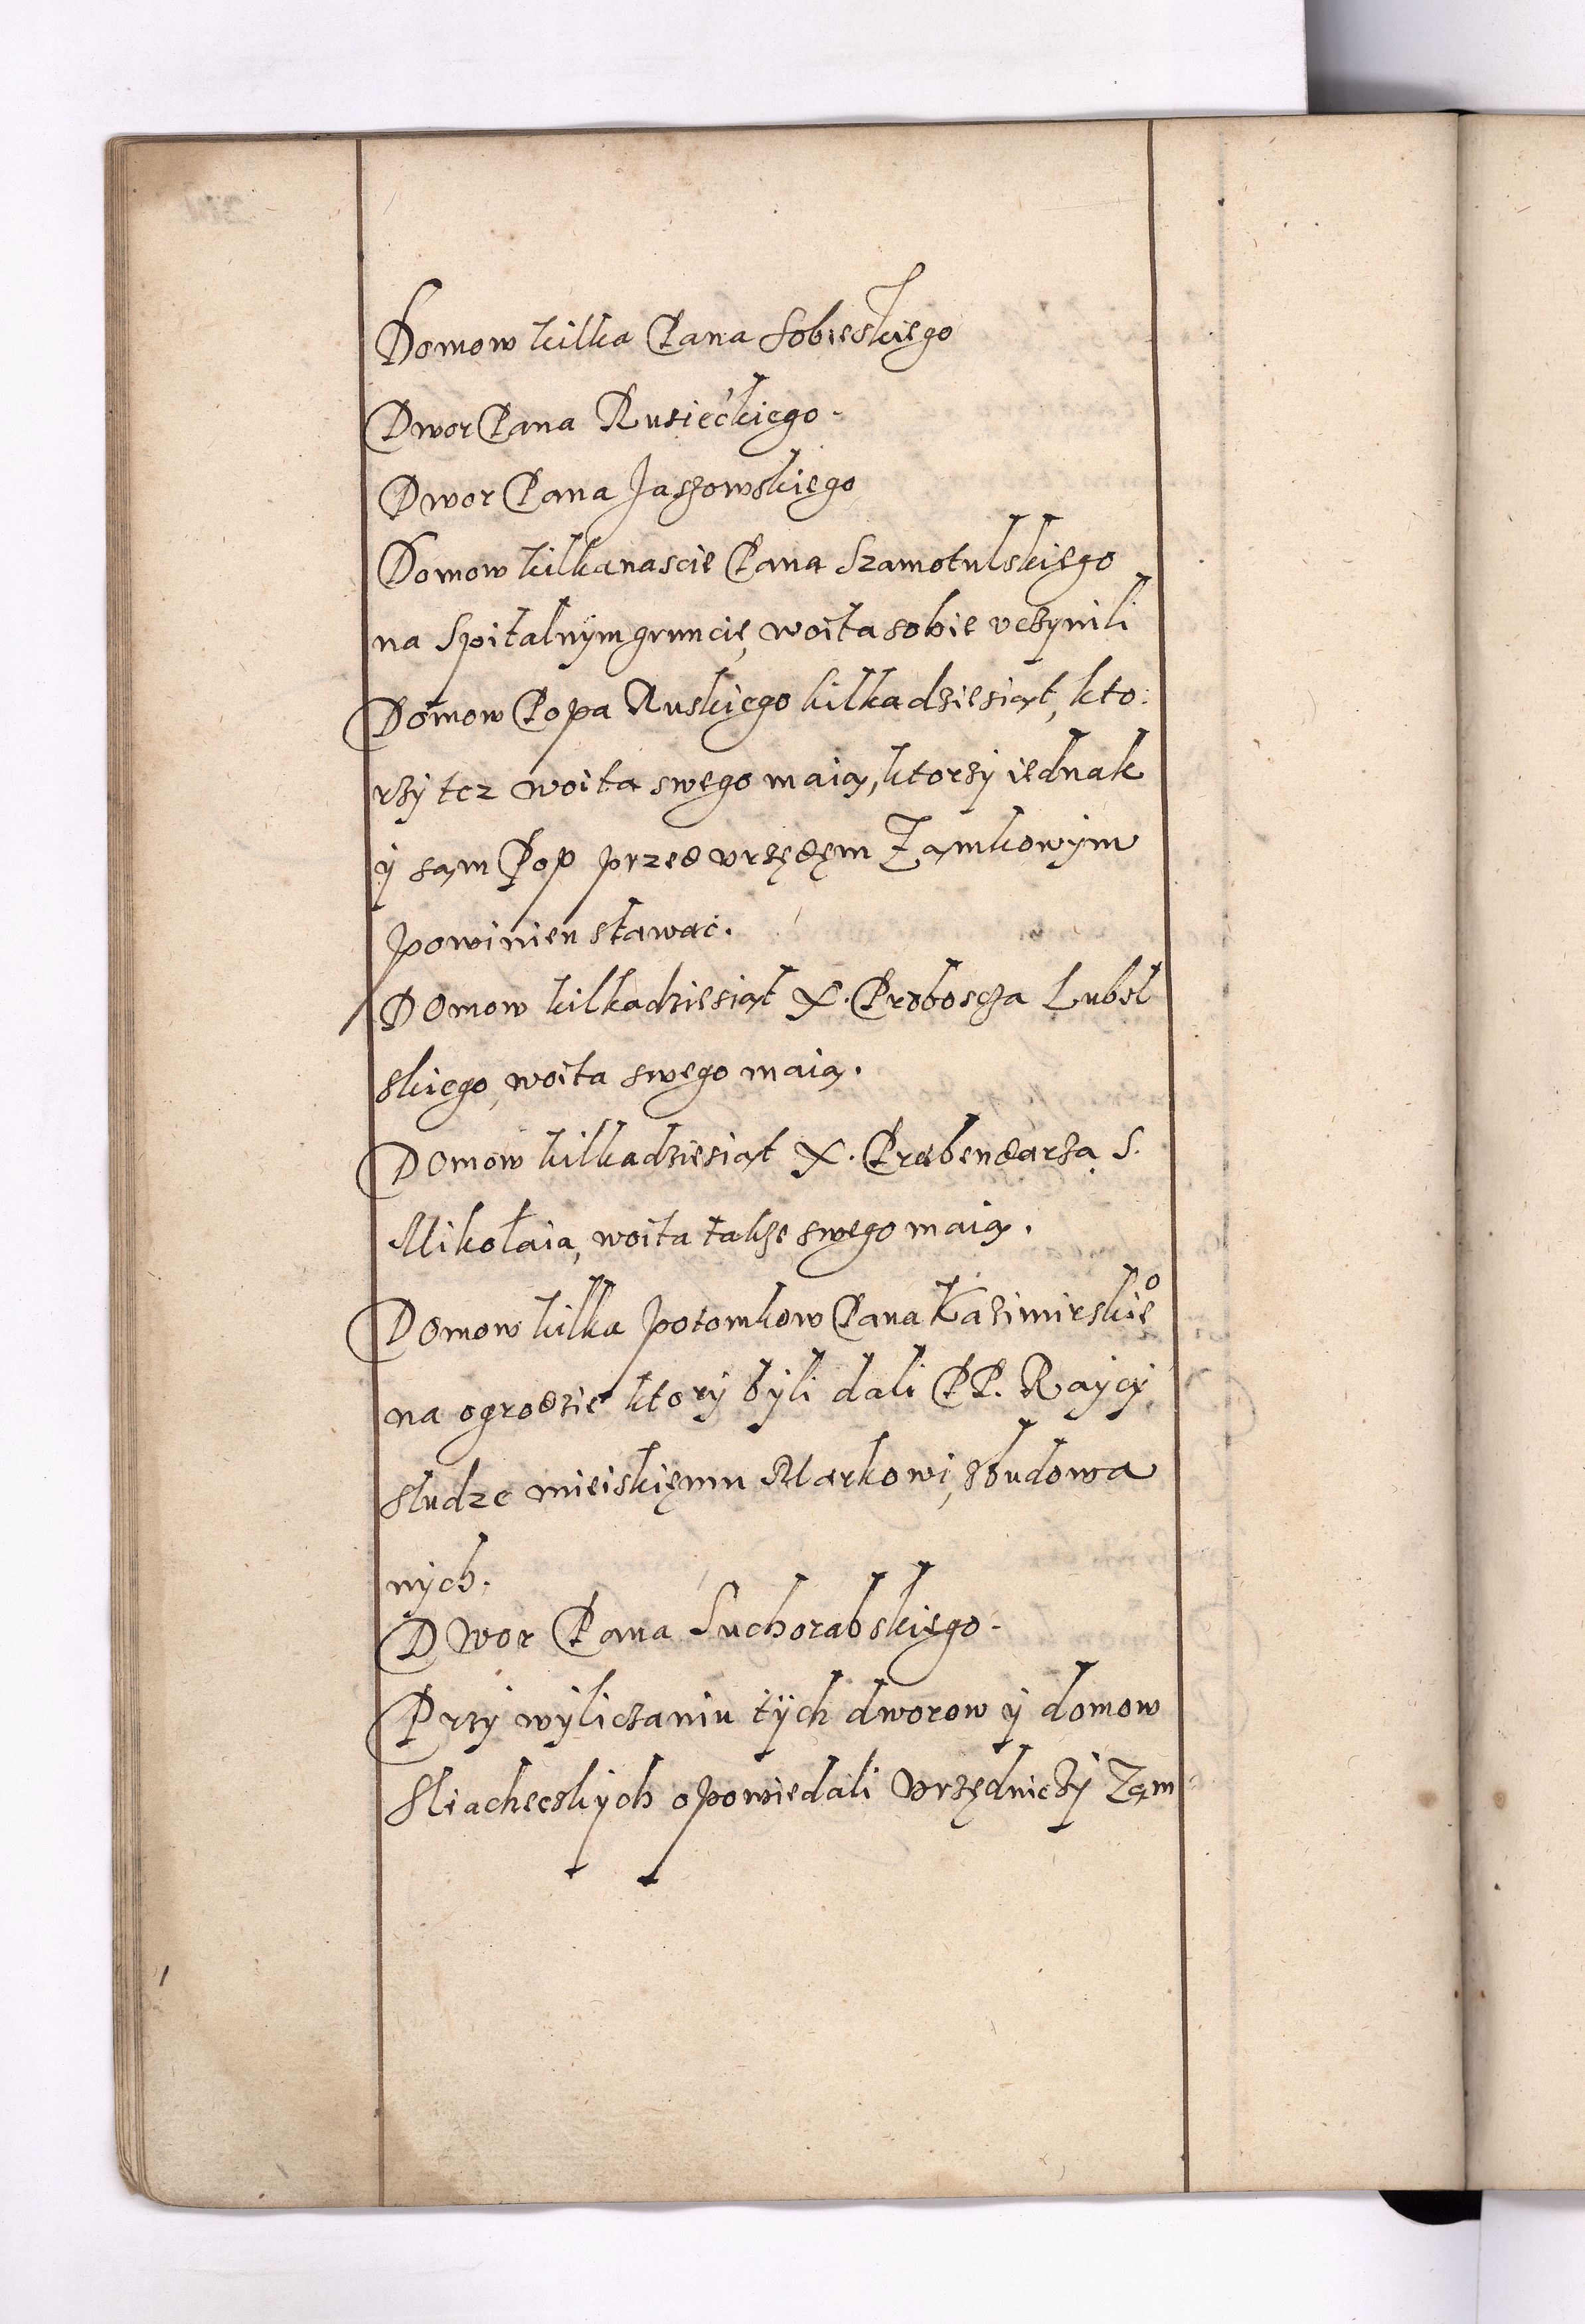 Domow kilka Pana Sobieskiego
Dwor Pana Rusieckiego.
Dwor Pana Jaszowskiego
Domow kilkanascie Pana Szamotulskiego
na Spitalnÿm gruncie, woita sobie vczynili
Domow Popa Ruskiego kilkadziesiąt, kto:
rzÿ tez woita swego maią, ktorzÿ iednak
ÿ sąm Pop przed vrzędęm Zamkowÿm
powinien stawac.
Domow kilkadziesiąt X. Proboscza Lubel
skiego, woita swego maią.
Domow kilkadziesiąt X. Præbendarza S.
Mikołaia, woita takze swego maią.
Domow kilka potomkow Pana Kazimirskieº
na ogrodzie ktorÿ bÿli dali PP. Raÿcÿ
słudze mieiskięmu Markowi, zbudowa
nÿch.
Dwor Pana Suchorabskiego.
Przÿ wÿliczaniu tÿch dworow ÿ domow
Sliacheckÿch opowiedali Vrzędniczÿ Zam